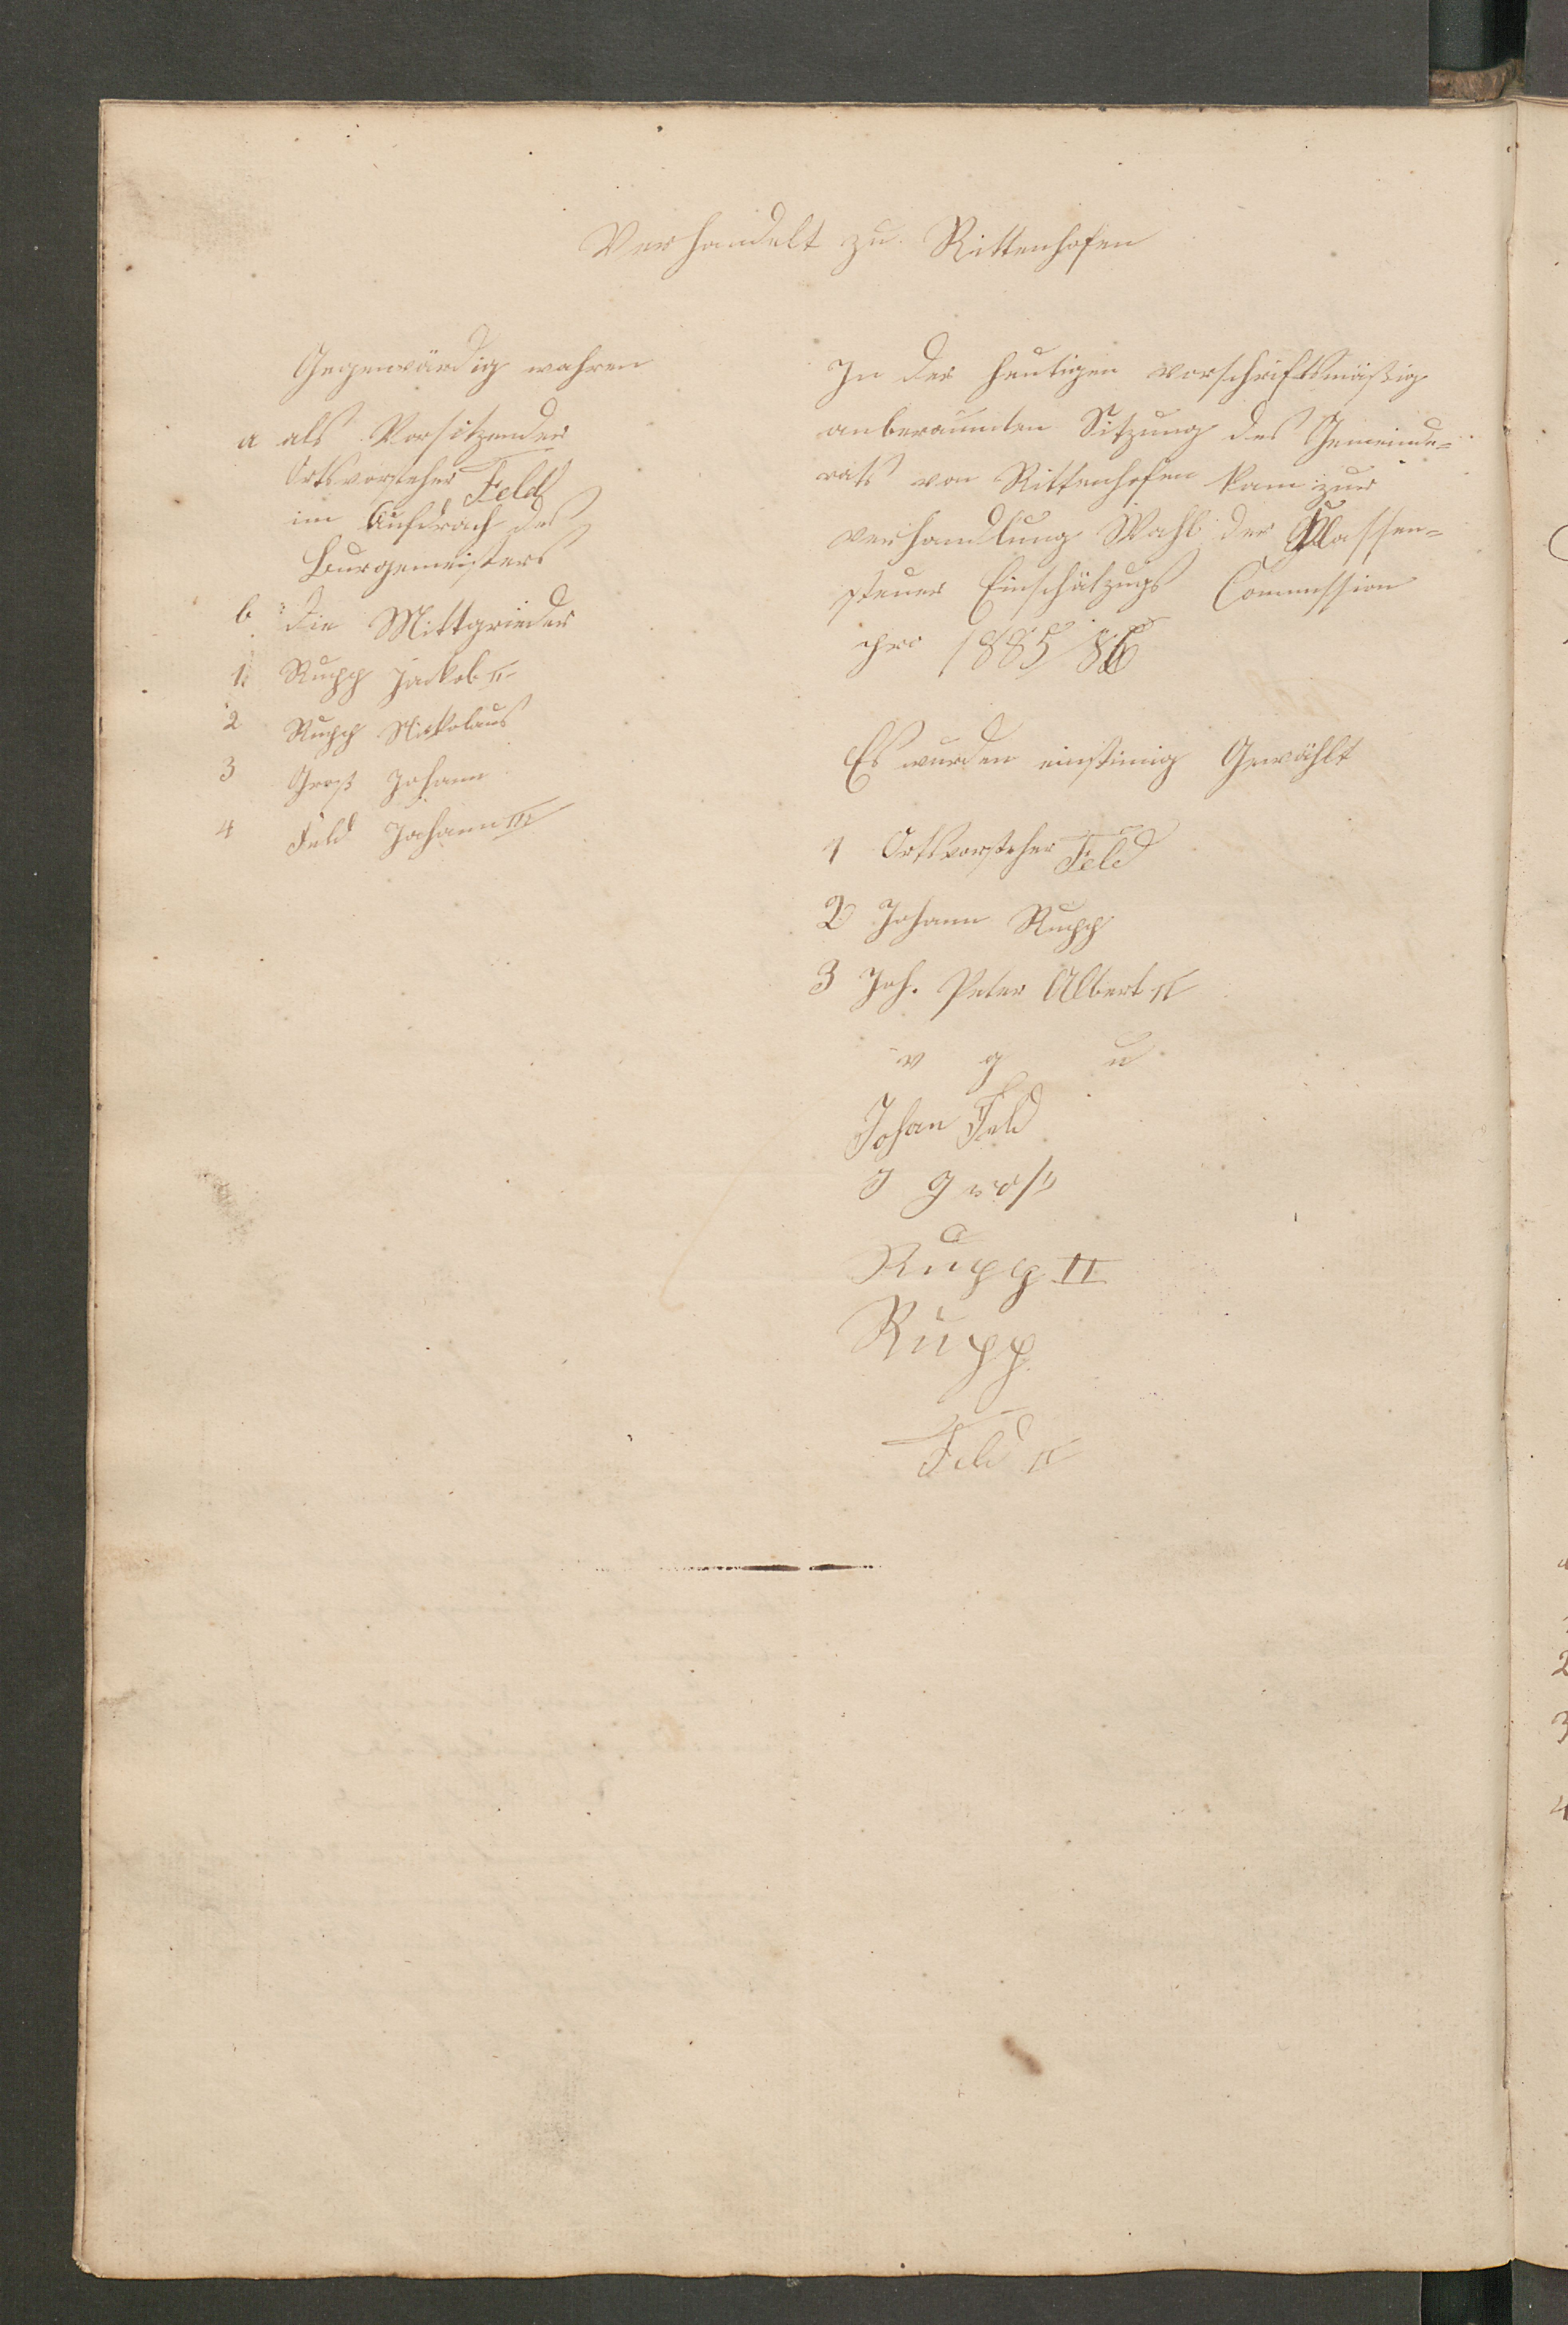 Verhandelt zu Rittenhofen
Gegenwärdig wahren
a als Vorsitzender
Ortsvorsteher Feld
im Aufdrach des
Burgemeisters
b die Mittgrieder
1. Rupp Jackob II
2 Rupp Nickolaus
3 Groß Johann
4 Feld Johann III
In der heutigen vorschriftsmäßig
anberaumten Sitzung des Gemeinde-
rats von Rittenhofen kam zur
verhandlung Wahl der Klassen-
steuer Einschätzugs Commission
pro 1885/86
Es wurden einstimig Gewählt
1 Ortsvorsteher Feld
2 Johann Rupp
3 Joh. Peter Albert II
v g u
Johan Feld
J Groß
Rupp II
Rupp
Feld II
2
3
4